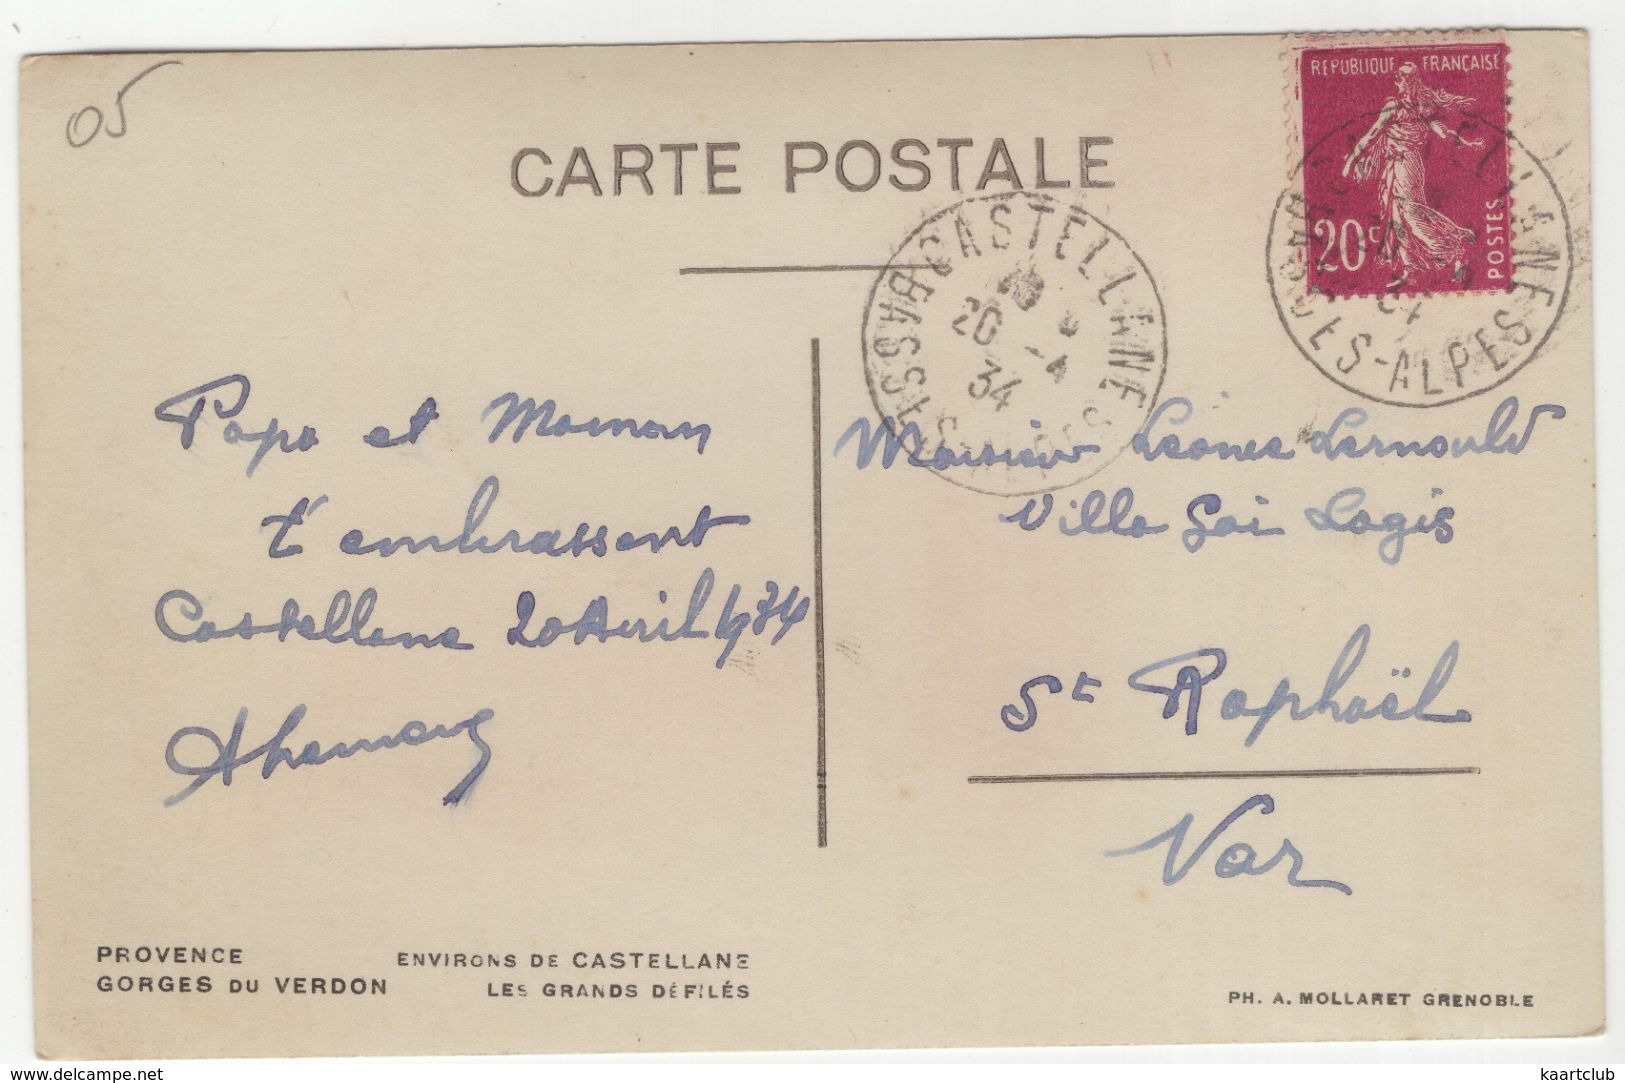 05
CARTE POSTALE
REPUBLIQUE FRANÇAISE
20c
POSTES
CASTELLANE
BASSES-ALPES
20 -4
34
CASTELLANE
BASSES-ALPES
Papa et Maman
t'embrassent
Castellane 20 Avril 1934
Monsieur Léonce Lernould
Villa Gai Logis
St Raphaël
Var
PROVENCE
GORGES DU VERDON
ENVIRONS DE CASTELLANE
LES GRANDS DÉFILÉS
PH. A. MOLLARET GRENOBLE
www.delcampe.net
kaartclub